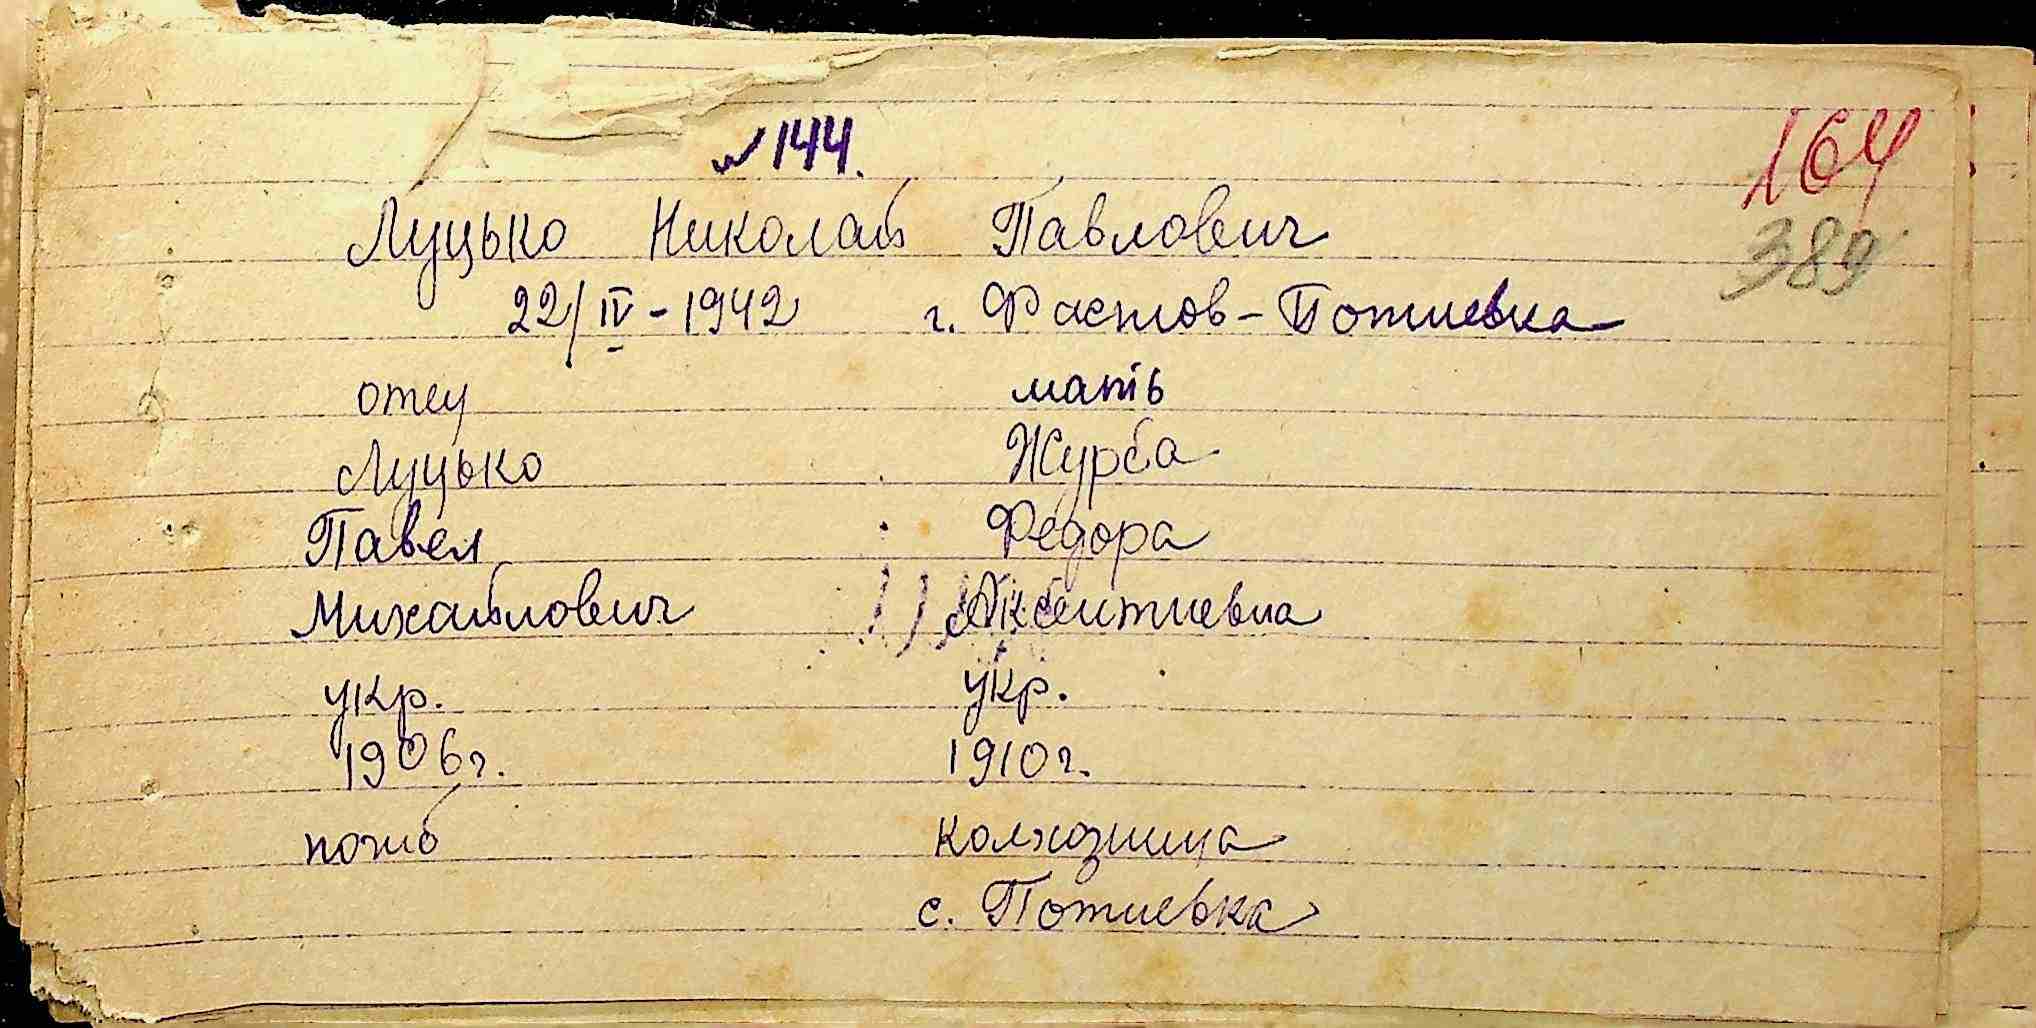 № 144.
164
389
Луцько Николай Павлович
22/IV-1942 г. Фастов-Потиевка
отец мать
Луцько Журба
Павел Федора
Михайлович Аксентиевна
укр. укр.
1906г. 1910г.
погиб колхозница
с. Потиевка